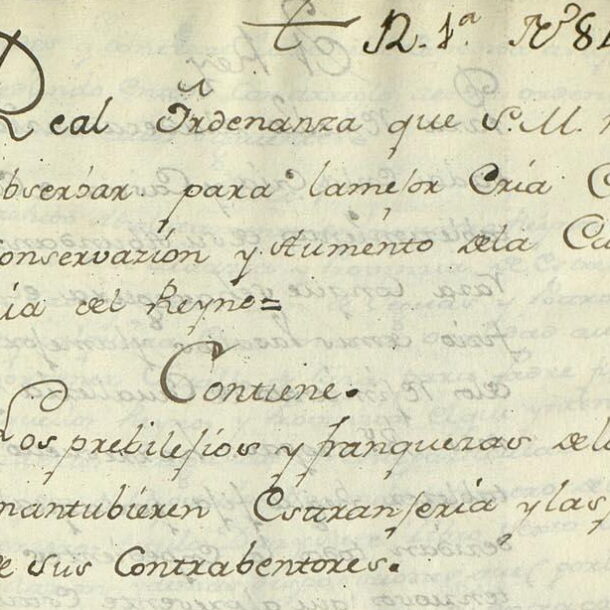 R. 1ª Nº 81
Real Ordenanza que S. M.
observar para lamejor Cria C
onservazion y Aumento dela Ca
ia del Reyno=
Contiene.
Los prebilejios y franquezas delo
mantubieren Estranjeria y las
e sus Contrabentores.